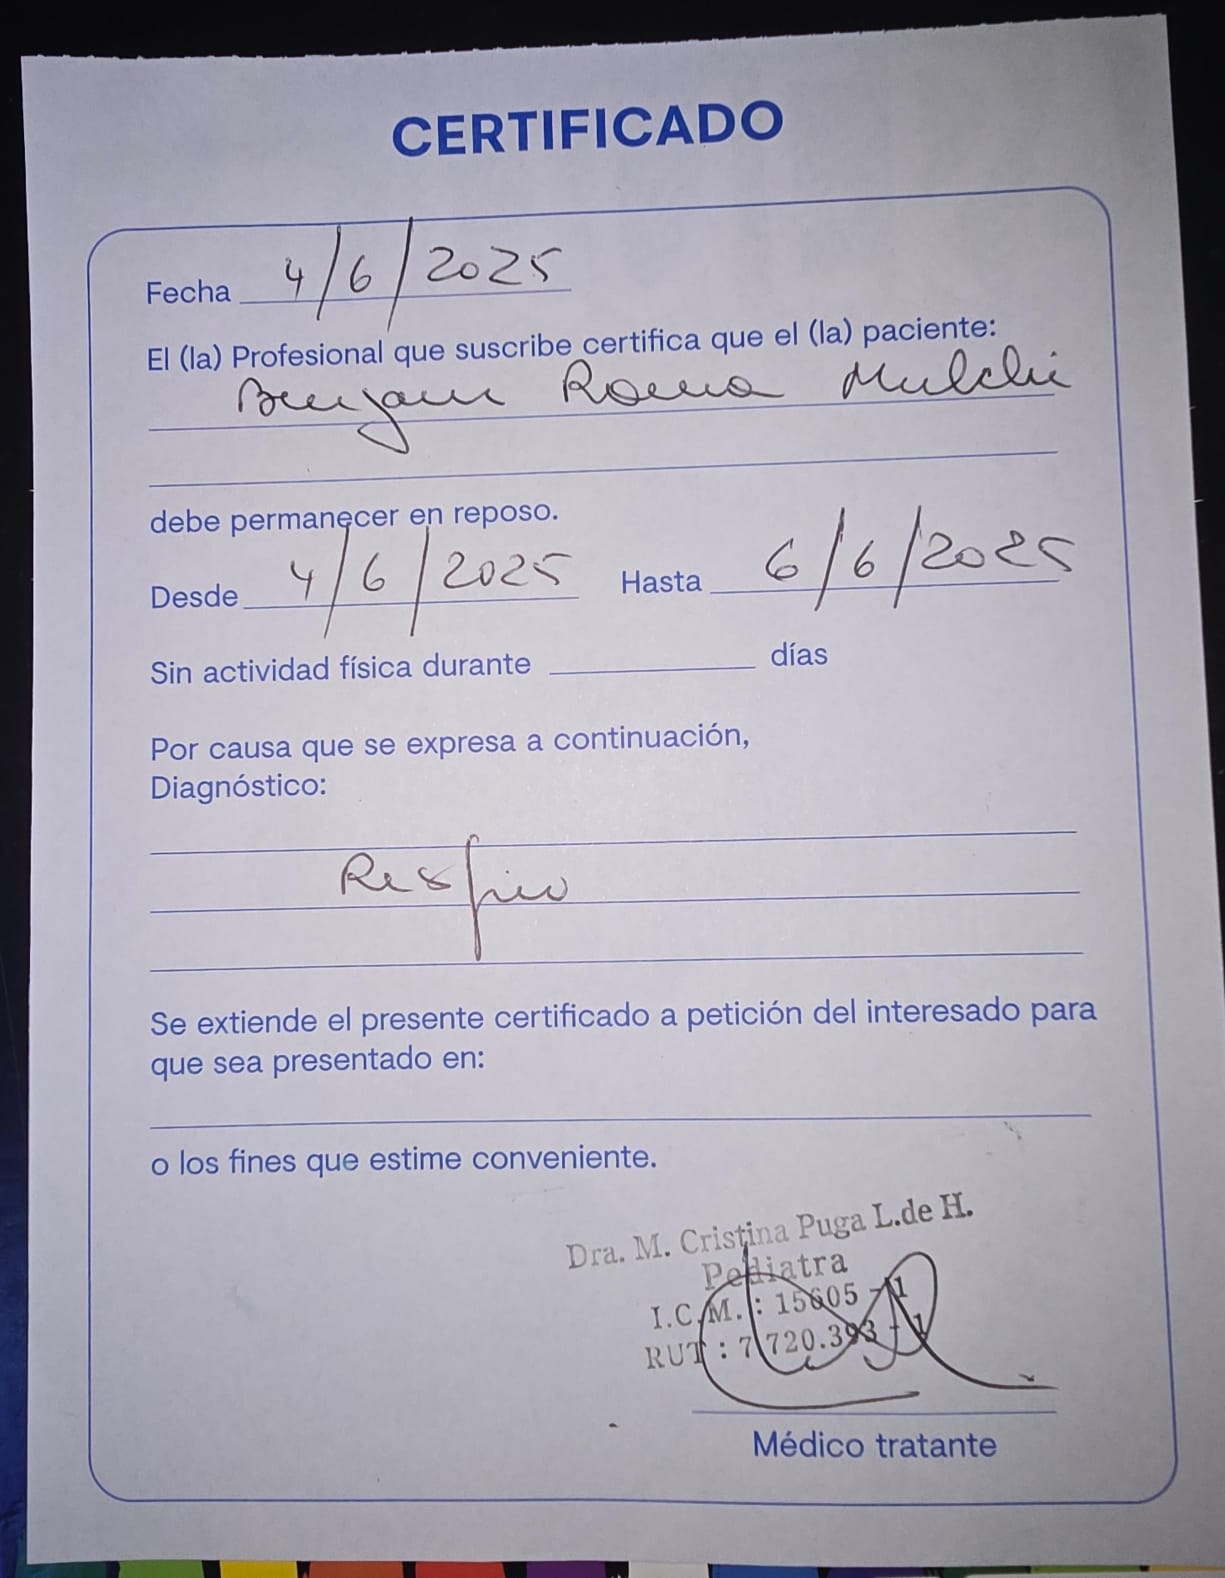 CERTIFICADO
Fecha 4/6/2025
El (la) Profesional que suscribe certifica que el (la) paciente:
debe permanecer en reposo.
Desde 4/6/2025 Hasta 6/6/2025
Sin actividad física durante días
Por causa que se expresa a continuación,
Diagnóstico:
Resfrio
Se extiende el presente certificado a petición del interesado para
que sea presentado en:
o los fines que estime conveniente.
Dra. M. Cristina Puga L.de H.
Pediatra
I.C.M. : 15605 - 1
RUT : 7.720.393 - 1
Médico tratante